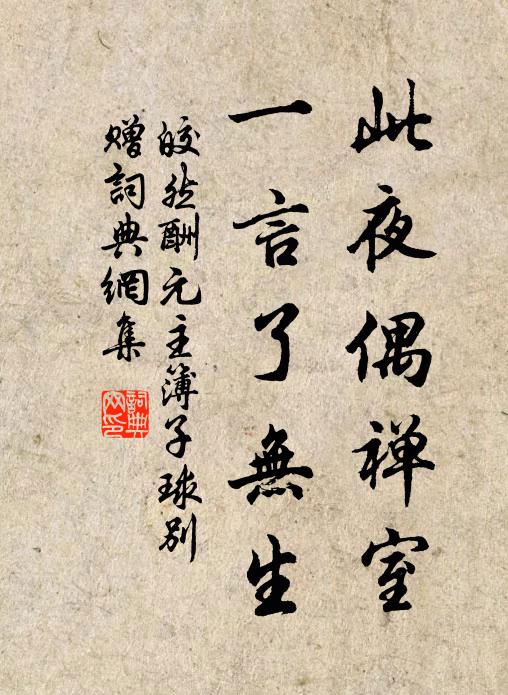 此夜偶禅室
一言了無生
皎然酬元主簿子球别
赠詞典網集
詞典网印